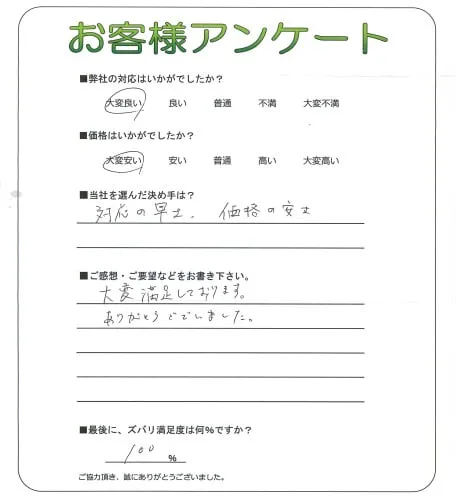 お客様アンケート
■弊社の対応はいかがでしたか？
大変良い 良い 普通 不満 大変不満
■価格はいかがでしたか？
大変安い 安い 普通 高い 大変高い
■当社を選んだ決め手は？
対応の早さ、価格の安さ
■ご感想・ご要望などをお書き下さい。
大変満足しております。
ありがとうございました。
■最後に、ズバリ満足度は何％ですか？
100 ％
ご協力頂き、誠にありがとうございました。